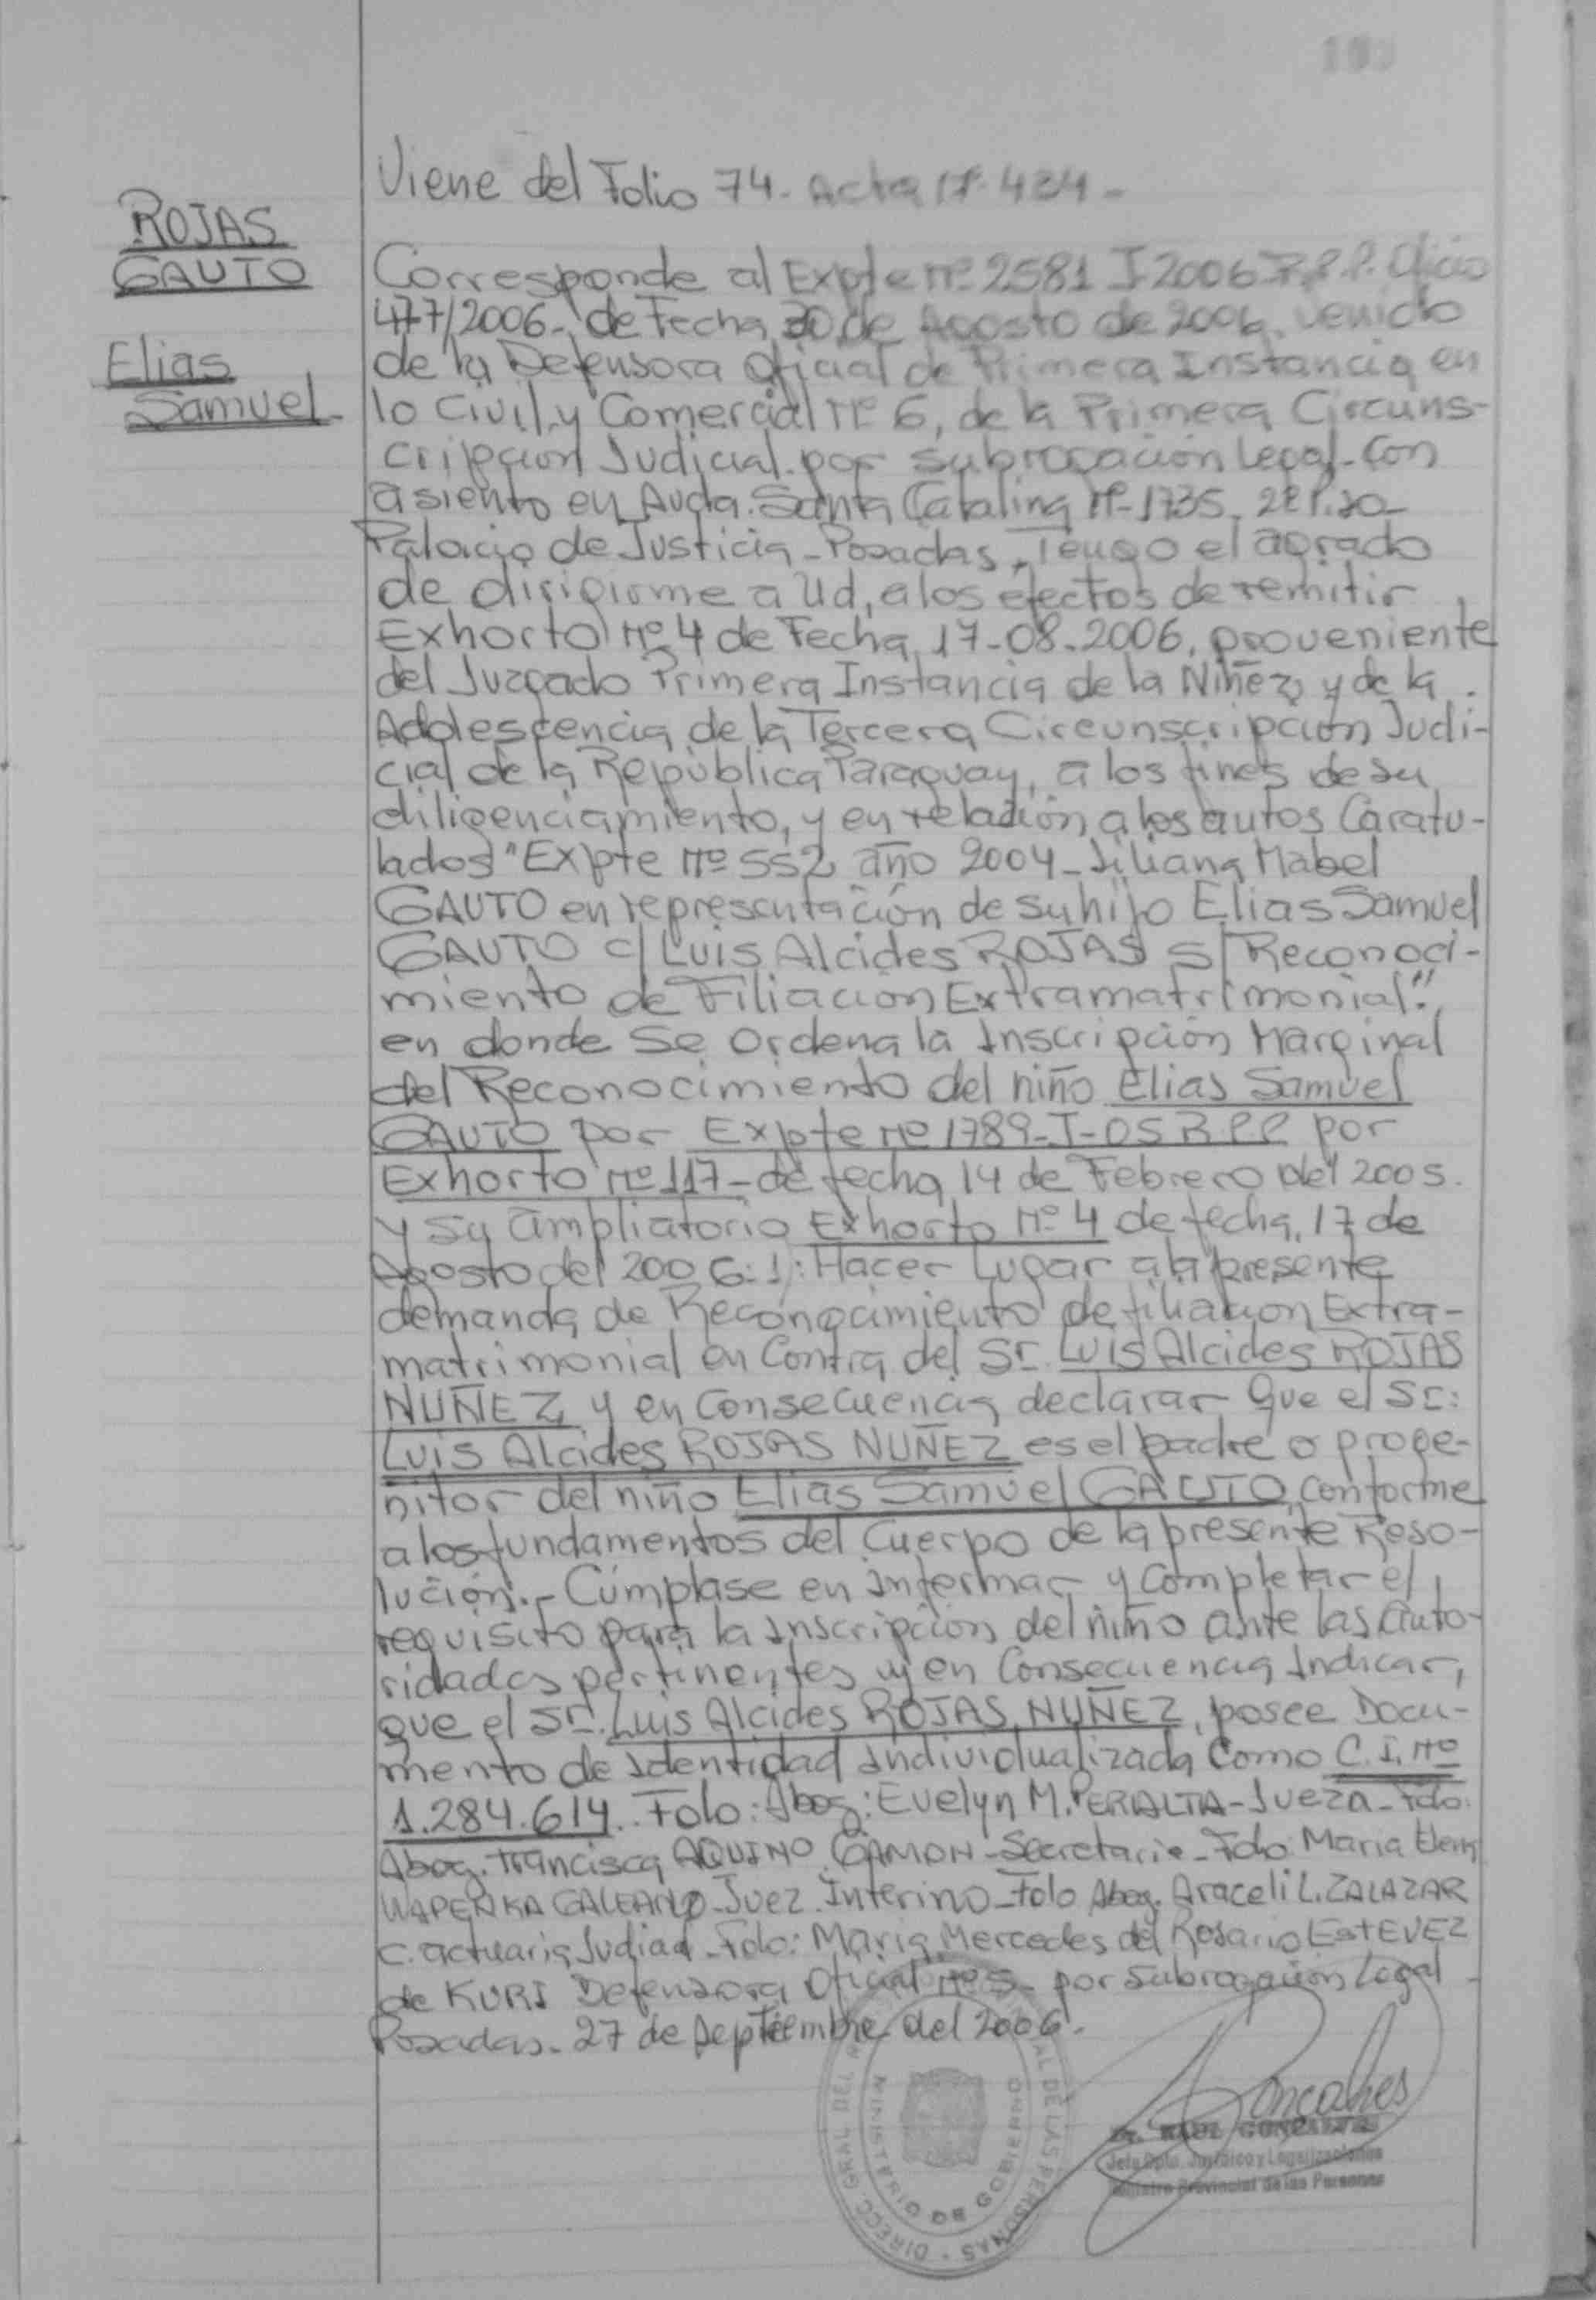 ROJAS
GAUTO
Elias
Samuel
Viene del Folio 74. Acta Nº 434 -
Corresponde al Expte Nº 2581 I 2006 R.P.P. Oficio
477/2006 - de Fecha 30 de Agosto de 2006, venido
de la Defensora Oficial de Primera Instancia en
lo Civil y Comercial Nº 6, de la Primera Circuns-
cripcion Judicial - por Subrogación Legal - Con
asiento en Avda. Santa Catalina Nº 1735 - 2º Piso -
Palacio de Justicia - Posadas, Tengo el agrado
de dirigirme a Ud, a los efectos de remitir
Exhorto Nº 4 de Fecha 17-08-2006, proveniente
del Juzgado Primera Instancia de la Niñez y de la
Adolescencia de la Tercera Circunscripción Judi-
cial de la República Paraguay, a los fines de su
diligenciamiento, y en relación a los autos Caratu-
lados "Expte Nº 552 año 2004 - Liliana Mabel
GAUTO en representación de su hijo Elias Samuel
GAUTO c/ Luis Alcides ROJAS s/ Reconoci-
miento de Filiación Extramatrimonial".
en donde Se Ordena la Inscripción Marginal
del Reconocimiento del niño Elias Samuel
GAUTO por Expte Nº 1789-I-05 R.P.P por
Exhorto Nº 117 - de fecha 14 de Febrero del 2005.
y su ampliatorio Exhorto Nº 4 de fecha, 17 de
Agosto del 2006: 1): Hacer Lugar a la presente
demanda de Reconocimiento de filiacion Extra-
matrimonial en Contra del Sr. Luis Alcides ROJAS
NUÑEZ, y en Consecuencia declarar que el Sr:
Luis Alcides ROJAS NUÑEZ es el padre o proge-
nitor del niño Elias Samuel GAUTO, conforme
a los fundamentos del Cuerpo de la presente Reso-
lución. - Cúmplase en informar y Completar el
requisito para la Inscripción del niño ante las Auto-
ridades pertinentes y en Consecuencia Indicar,
que el Sr. Luis Alcides ROJAS NUÑEZ, posee Docu-
mento de Identidad Individualizada Como C.I. Nº
1.284.614. Fdo: Abog: Evelyn M. PERALTA - Jueza - Fdo:
Abog. Francisca AQUINO GAMON - Secretaria - Fdo: Maria Elena
WAPENKA GALEANO - Juez Interino - Fdo Abog. Araceli L. ZALAZAR
C. actuaria Judicial - Fdo: Maria Mercedes del Rosario EstEVEZ
de KURI Defensora Oficial Nº 5 - por Subrogación Legal -
Posadas - 27 de Septiembre del 2006.
Goncalves
Dr. RAUL GONCALVES
Jefe Dpto. Jurídico y Legalizaciones
Registro Provincial de las Personas
MINISTERIO DE GOBIERNO